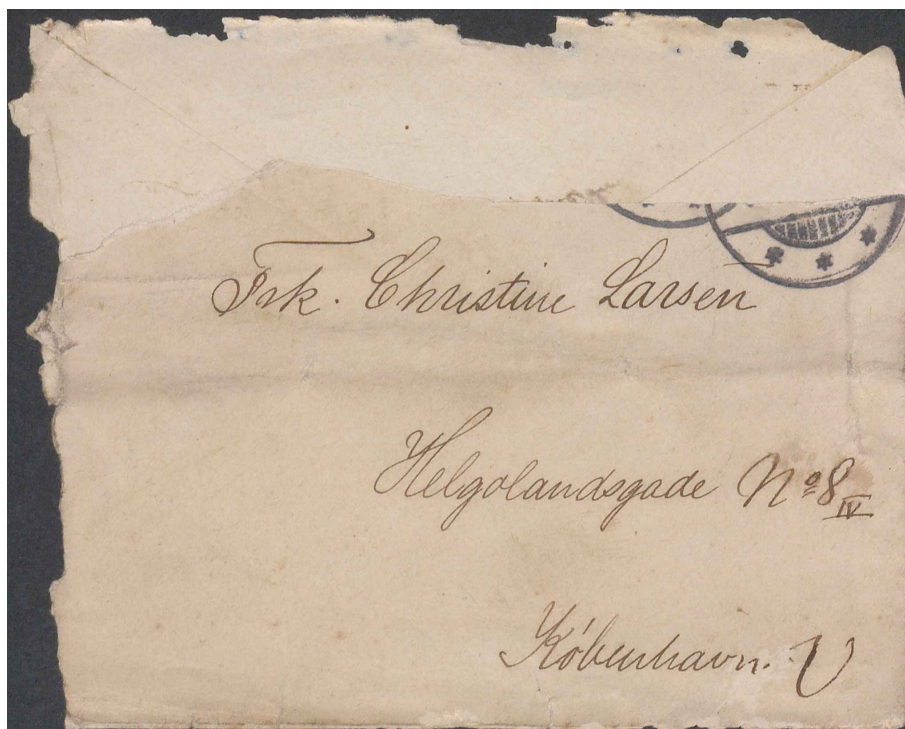 Frk. Christine Larsen
Helgolandsgade Nº 8 IV
København. V